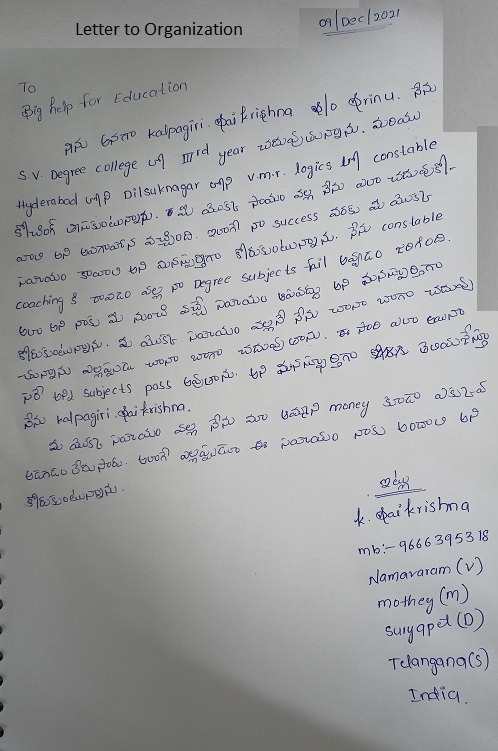 Letter to Organization
09/Dec/2021
To
Big help for Education
నేను అనగా kalpagiri. Saikrishna S/o Srinu. నేను
S.V. Degree college లో IIIrd year చదువుతున్నాను. మరియు
Hyderabad లోని Dilsuknagar లోని V.m.r. logics లో constable
కోచింగ్ తీసుకుంటున్నాను. మీ యొక్క సాయం వల్ల నేను ఎలా చదువుకో-
వాలి అని అవగాహన వచ్చింది. ఇలాగే నా success వరకు మీ యొక్క
సహాయం కావాలి అని మనస్ఫూర్తిగా కోరుకుంటున్నాను. నేను constable
coaching కి రావడం వల్ల నా Degree subjects fail అవ్వడం జరిగింది.
అలా అని నాకు మీ నుంచి వచ్చే సహాయం ఆపవద్దు అని మనస్ఫూర్తిగా
కోరుకుంటున్నాను. మీ యొక్క సహాయం వల్లనే నేను చాలా బాగా చదువు
-తున్నాను ఎల్లప్పుడు చాలా బాగా చదువుతాను. ఈ సారి ఎలా అయినా
సరే అన్ని subjects pass అవుతాను. అని మనస్ఫూర్తిగా తెలియజేస్తూ
నేను kalpagiri. Saikrishna.
మీ యొక్క సహాయం వల్ల నేను మా అమ్మని money కూడా ఎక్కువ
అడగడం లేదు సారు. అలాగే ఎల్లప్పుడూ ఈ సహాయం నాకు అందాలి అని
కోరుకుంటున్నాను.
ఇట్లు
K. Saikrishna
mb:- 9666395318
Namavaram (V)
mothey (m)
Suryapet (D)
Telangana (S)
India.